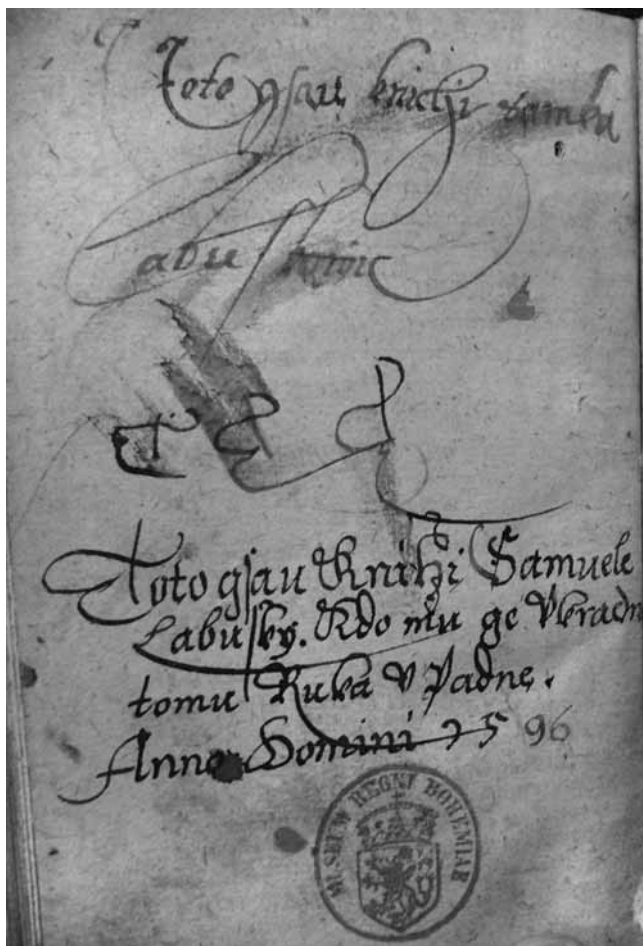 Toto gsau knihi
Toto gsau Knihi Samuele
Labusky. Kdo mu ge Vkradn
tomu Ruka V Padne.
Anno Domini 1596
MUSEUM REGNI BOHEMIAE